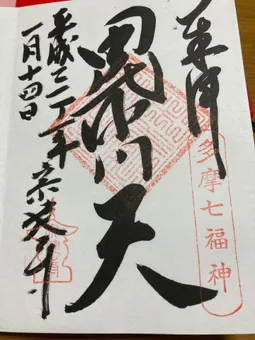 奉拝
多摩七福神
毘沙門天
平成三十一年
一月十四日
宗建寺